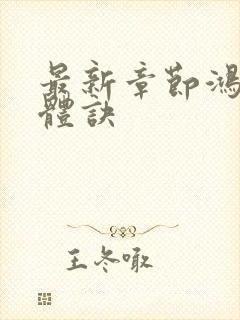 最新章節鴻
體訣
王冬噉